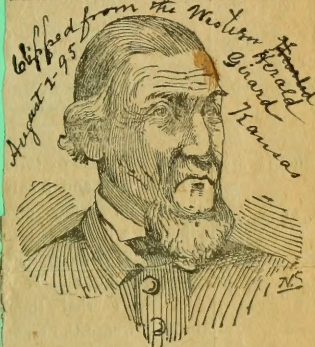 Clipped from the Western
Herald
Girard
Kansas
August 1-95
NS